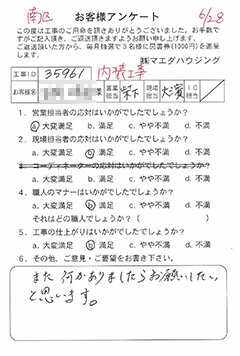 南区 お客様アンケート 6/28
この度は工事のご用命を頂きありがとうございました。お手数で
すがご記入頂き、ご返送頂きますようお願い申し上げます。
ご返送頂いた方から、毎月抽選で3名様に図書券(1000円)を進呈
します。
㈱マエダハウジング
工事ID 35961 内装工事
お客様名 様 営業担当 工事担当 IC担当
1. 営業担当者の応対はいかがでしたでしょうか?
a. 大変満足 b. 満足 c. やや不満 d. 不満
2. 現場担当者の応対はいかがでしたでしょうか?
a. 大変満足 b. 満足 c. やや不満 d. 不満
3. コーディネーターの応対はいかがでしたでしょうか?
a. 大変満足 b. 満足 c. やや不満 d. 不満
4. 職人のマナーはいかがでしたでしょうか?
a. 大変満足 b. 満足 c. やや不満 d. 不満
それはどの職人でしょうか? (
5. 工事の仕上がりはいかがでしたでしょうか?
a. 大変満足 b. 満足 c. やや不満 d. 不満
6. その他、ご意見・ご要望をお書き下さい。
また何かありましたらお願いしたい
と思います。